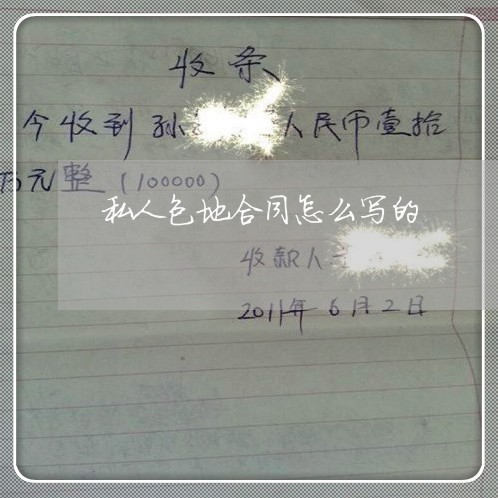 收条
今收到孙 人民币壹拾
万元整（100000）
私人包地合同怎么写的
收款人
2011年6月2日